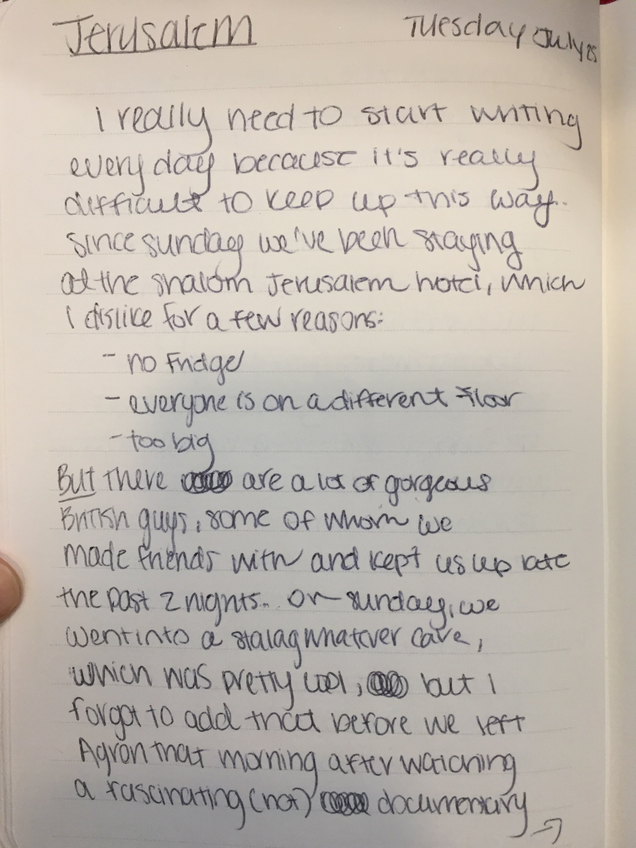 Jerusalem
Tuesday July 25
I really need to start writing
every day because it's really
difficult to keep up this way.
Since sunday we've been staying
at the shalom Jerusalem hotel, which
I dislike for a few reasons:
- no fridge
- everyone is on a different floor
- too big
But there are a lot of gorgeous
British guys, some of whom we
made friends with and kept us up late
the past 2 nights. On sunday, we
went into a stalagwhatever cave,
which was pretty cool, but I
forgot to add that before we left
Agron that morning after watching
a fascinating (not) documentary
→